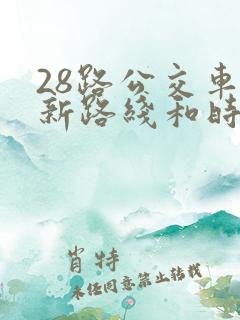 28路公交车
新路线和时
肖特
未经同意禁止转载